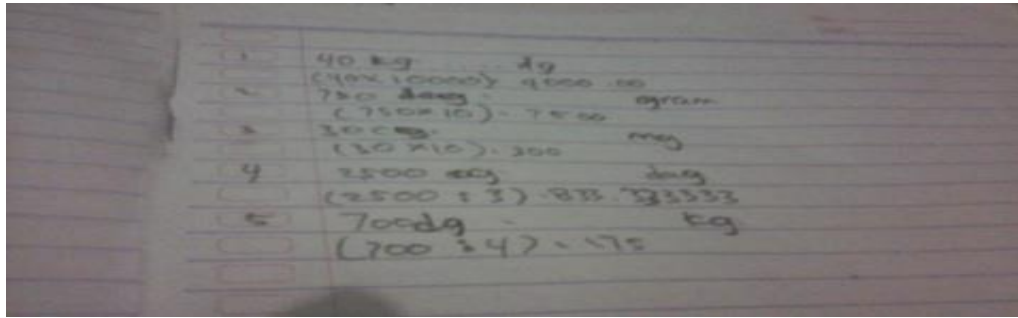 1 40 kg ..... dg
(40 x 10000) 4000.00
2 750 dag. ogram
(750 x 10) = 7500
3 30 cg. mg
(30 x 10). 300
4 2500 cg dag
(2500 : 3) .833.333333
5 700dg - kg
(700 : 4) = 175